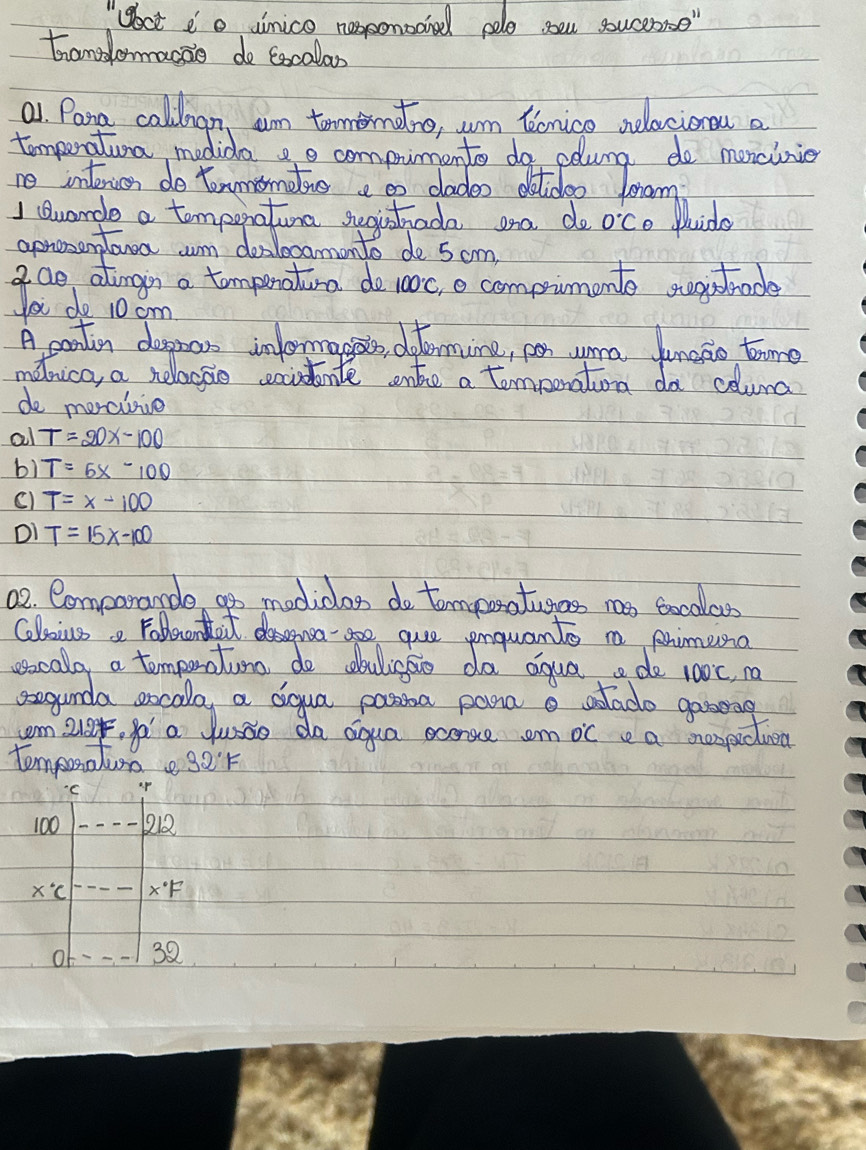 "Você é o único responsável pelo seu sucesso"
Transformação de Escalas
01. Para calibrar, um termômetro, um técnico relacionou a
temperatura medida e o comprimento da coluna de mercúrio
no interior do termômetro e os dados obtidos foram:
1 Quando a temperatura registrada era de 0°C o fluido
apresentava um deslocamento de 5 cm,
2 ao, atingir a temperatura de 100°C, o comprimento registrado
foi de 10 cm
A partir dessas informações, determine, por uma função termo
métrica, a relação existente entre a temperatura da coluna
de mercúrio
a) T = 20x - 100
b) T = 5x - 100
c) T = x - 100
D) T = 15x - 100
02. Comparando as medidas de temperaturas nas escalas
Celsius e Fahrenheit observa-se que enquanto na primeira
escala a temperatura de ebulição da água e de 100°C, na
segunda escala, a água passa para o estado gasoso
em 212°F, já a fusão da água ocorre em 0°C e a respectiva
temperatura e 32°F
°C °F
100 - - - - 212
x°C - - - - x°F
0 - - - - 32